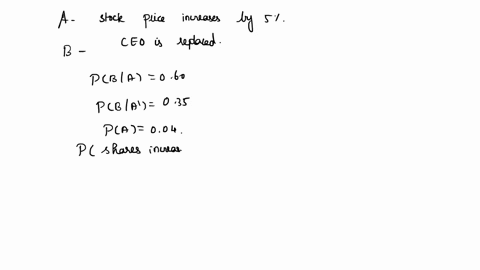 A - stock price increases by 5%.
B - CEO is replaced.
P(B/A) = 0.60
P(B/A') = 0.35
P(A) = 0.04.
P( shares increas